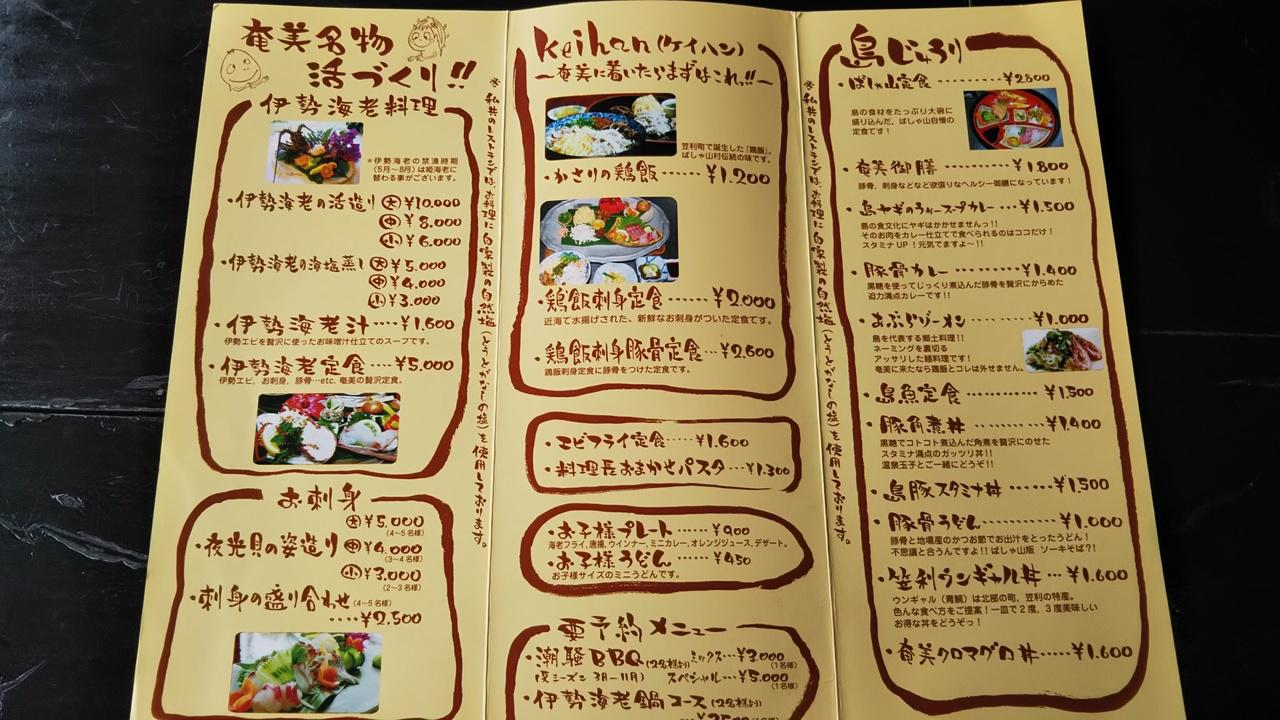 奄美名物
活づくり!!
伊勢海老料理
＊伊勢海老の禁漁時期
(5月～8月)は姫海老に
替わる事がございます。
・伊勢海老の活造り 大 ¥10.000
中 ¥8.000
小 ¥6.000
・伊勢海老の海塩蒸し 大 ¥5.000
中 ¥4.000
小 ¥3.000
・伊勢海老汁····¥1.600
伊勢エビを贅沢に使ったお味噌汁仕立てのスープです。
・伊勢海老定食····¥5.000
伊勢エビ、お刺身、豚骨…etc. 奄美の贅沢定食。
お刺身
・夜光貝の姿造り 大 ¥5.000
(4～5名様)
中 ¥4.000
(3～4名様)
小 ¥3.000
(2～3名様)
・刺身の盛り合わせ (4～5名様)
····¥2.500
※私共のレストランでは、お料理に自家製の自然塩(とうとがなしの塩)を使用しております。
Keihan (ケイハン)
―奄美に着いたらまずはこれっ!!―
笠利町で誕生した「鶏飯」。
ばしゃ山村伝統の味です。
・かさりの鶏飯······¥1.200
・鶏飯刺身定食······¥2.000
近海で水揚げされた、新鮮なお刺身がついた定食です。
・鶏飯刺身豚骨定食···¥2.600
鶏飯刺身定食に豚骨をつけた定食です。
・エビフライ定食····¥1.600
・料理長おまかせパスタ···¥1.300
・お子様プレート······¥900
海老フライ，唐揚，ウインナー，ミニカレー，オレンジジュース，デザート。
・お子様うどん······¥450
お子様サイズのミニうどんです。
要予約メニュー
・潮騒BBQ(2名様より) ミックス···¥3.000
(1名様)
(夏シーズン 3月～11月) スペシャル···¥5.000
(1名様)
・伊勢海老鍋コース(2名様より)
※私共のレストランでは、お料理に自家製の自然塩(とうとがなしの塩)を使用しております。
島じゅうり
・ばしゃ山定食·········¥2800
島の食材をたっぷり大碗に
盛り込んだ，ばしゃ山自慢の
定食です！
・奄美御膳··········¥1.800
豚骨，刺身などなど欲張りなヘルシー御膳になっています！
・島ヤギのうぃースープカレー···¥1.500
島の食文化にヤギはかかせませんっ!!
そのお肉をカレー仕立てで食べられるのはココだけ！
スタミナUP！元気でますよ～!!
・豚骨カレー·········¥1.400
黒糖を使ってじっくり煮込んだ豚骨を贅沢にからめた
迫力満点カレーです!!
・あぶらゾーメン······¥1.000
島を代表する郷土料理!!
ネーミングを裏切る
アッサリした麺料理です！
奄美に来たなら鶏飯とコレは外せません。
・島魚定食············¥1.500
・豚角煮丼··········¥1.400
黒糖でコトコト煮込んだ角煮を贅沢にのせた
スタミナ満点のガッツリ丼!!
温泉玉子とご一緒にどうぞ!!
・島豚スタミナ丼······¥1.500
・豚骨うどん·········¥1.000
豚骨と地場産のかつお節でお出汁をとったうどん！
不思議と合うんですよ!!ばしゃ山版 ソーキそば?!
・笠利ウンギャル丼···¥1.600
ウンギャル（青鯛）は北部の町，笠利の特産。
色んな食べ方をご提案！一皿で2度，3度美味しい
お得な丼をどうぞっ！
・奄美クロマグロ丼·····¥1.600